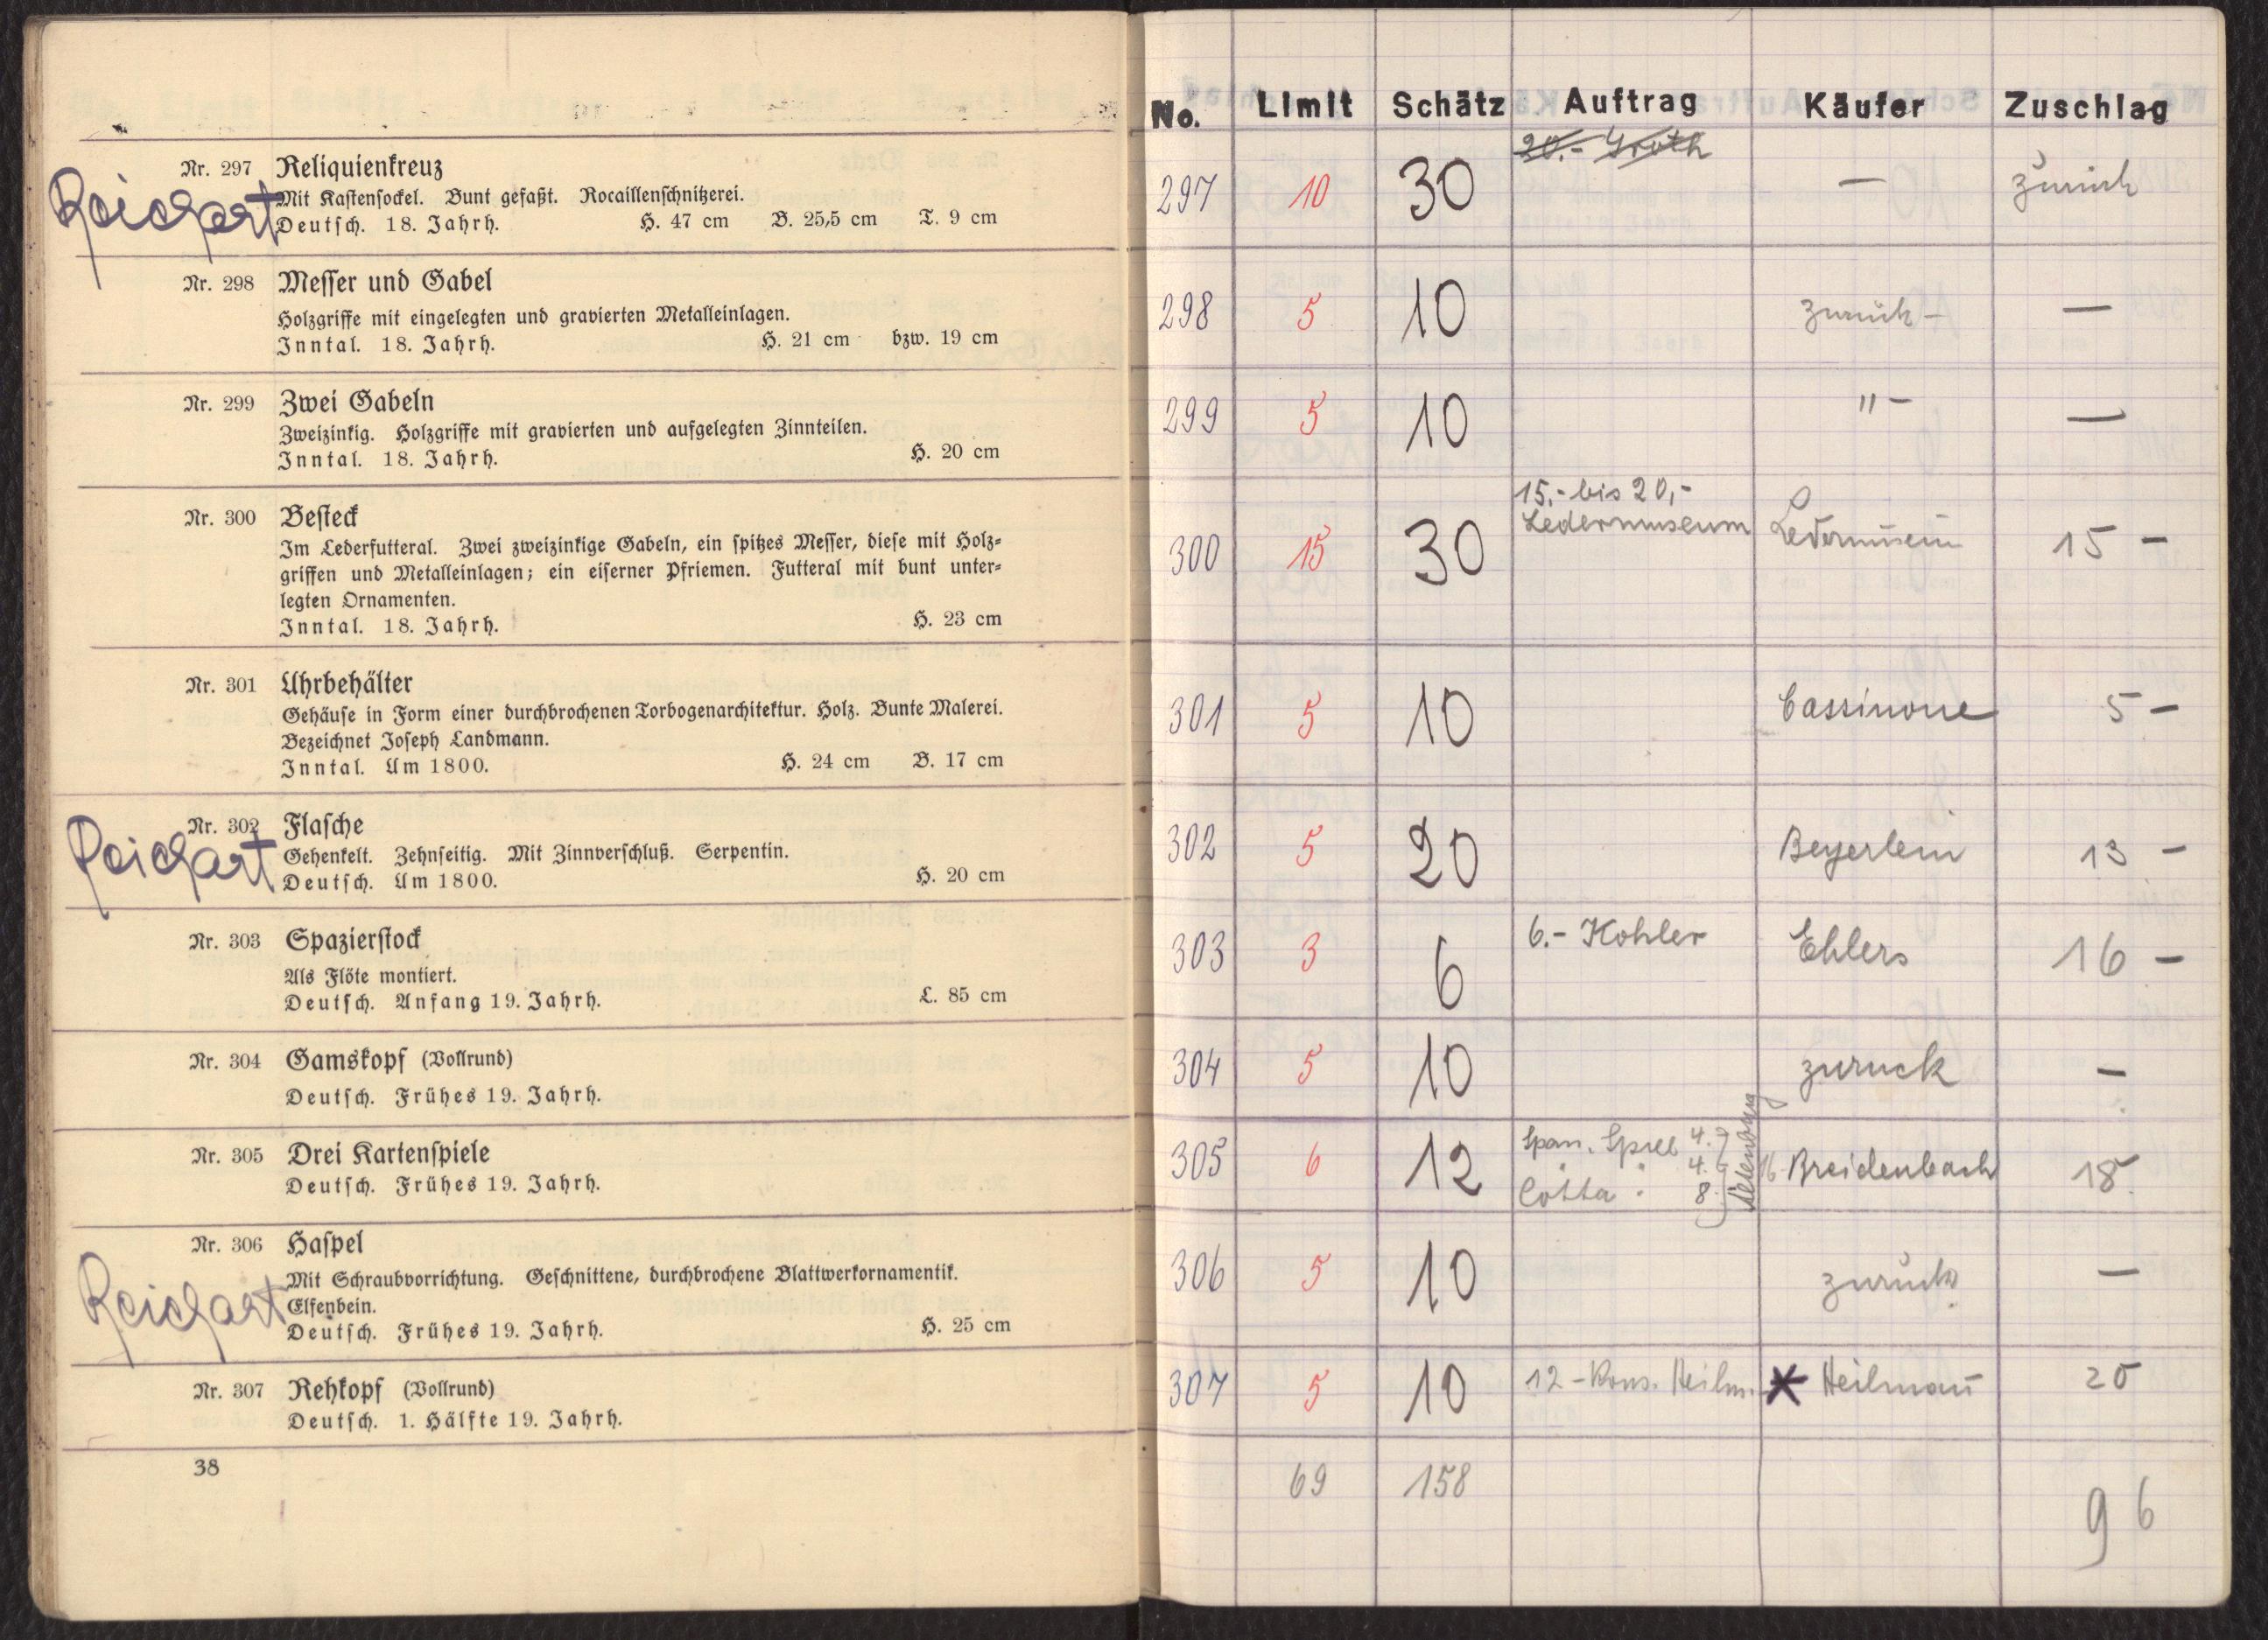 Nr. 297 Reliquienkreuz
Mit Kastensockel. Bunt gefaßt. Rocaillenschnitzerei.
Deutsch. 18. Jahrh. H. 47 cm B. 25,5 cm T. 9 cm
Reichart
Nr. 298 Messer und Gabel
Holzgriffe mit eingelegten und gravierten Metalleinlagen.
Inntal. 18. Jahrh. H. 21 cm bzw. 19 cm
Nr. 299 Zwei Gabeln
Zweizinkig. Holzgriffe mit gravierten und aufgelegten Zinnteilen.
Inntal. 18. Jahrh. H. 20 cm
Nr. 300 Besteck
Im Lederfutteral. Zwei zweizinkige Gabeln, ein spitzes Messer, diese mit Holz-
griffen und Metalleinlagen; ein eiserner Pfriemen. Futteral mit bunt unter-
legten Ornamenten.
Inntal. 18. Jahrh. H. 23 cm
Nr. 301 Uhrbehälter
Gehäuse in Form einer durchbrochenen Torbogenarchitektur. Holz. Bunte Malerei.
Bezeichnet Joseph Landmann.
Inntal. Um 1800. H. 24 cm B. 17 cm
Nr. 302 Flasche
Gehenkelt. Zehnseitig. Mit Zinnverschluß. Serpentin.
Deutsch. Um 1800. H. 20 cm
Reichart
Nr. 303 Spazierstock
Als Flöte montiert.
Deutsch. Anfang 19. Jahrh. L. 85 cm
Nr. 304 Gamskopf (Vollrund)
Deutsch. Frühes 19. Jahrh.
Nr. 305 Drei Kartenspiele
Deutsch. Frühes 19. Jahrh.
Nr. 306 Haspel
Mit Schraubvorrichtung. Geschnittene, durchbrochene Blattwerkornamentik.
Elfenbein.
Deutsch. Frühes 19. Jahrh. H. 25 cm
Reichart
Nr. 307 Rehkopf (Vollrund)
Deutsch. 1. Hälfte 19. Jahrh.
38
No. Limit Schätz Auftrag Käufer Zuschlag
20.- Groth
297 10 30 — zurück
298 5 10 zurück - —
299 5 10 " - —
15.- bis 20,-
Ledermuseum
300 15 30 Ledermuseum 15 -
301 5 10 Cassinone 5 -
302 5 20 Beyerlein 13 -
303 3 6 6.- Kohler Ehlers 16 -
304 5 10 zuruck —
Span. Spiel 4.
4.
Cotta " 8.
305 6 12 16 Breidenbach 18
306 5 10 zurück —
307 5 10 12 - Kons. Heilm. * Heilmann 20
69 158
96